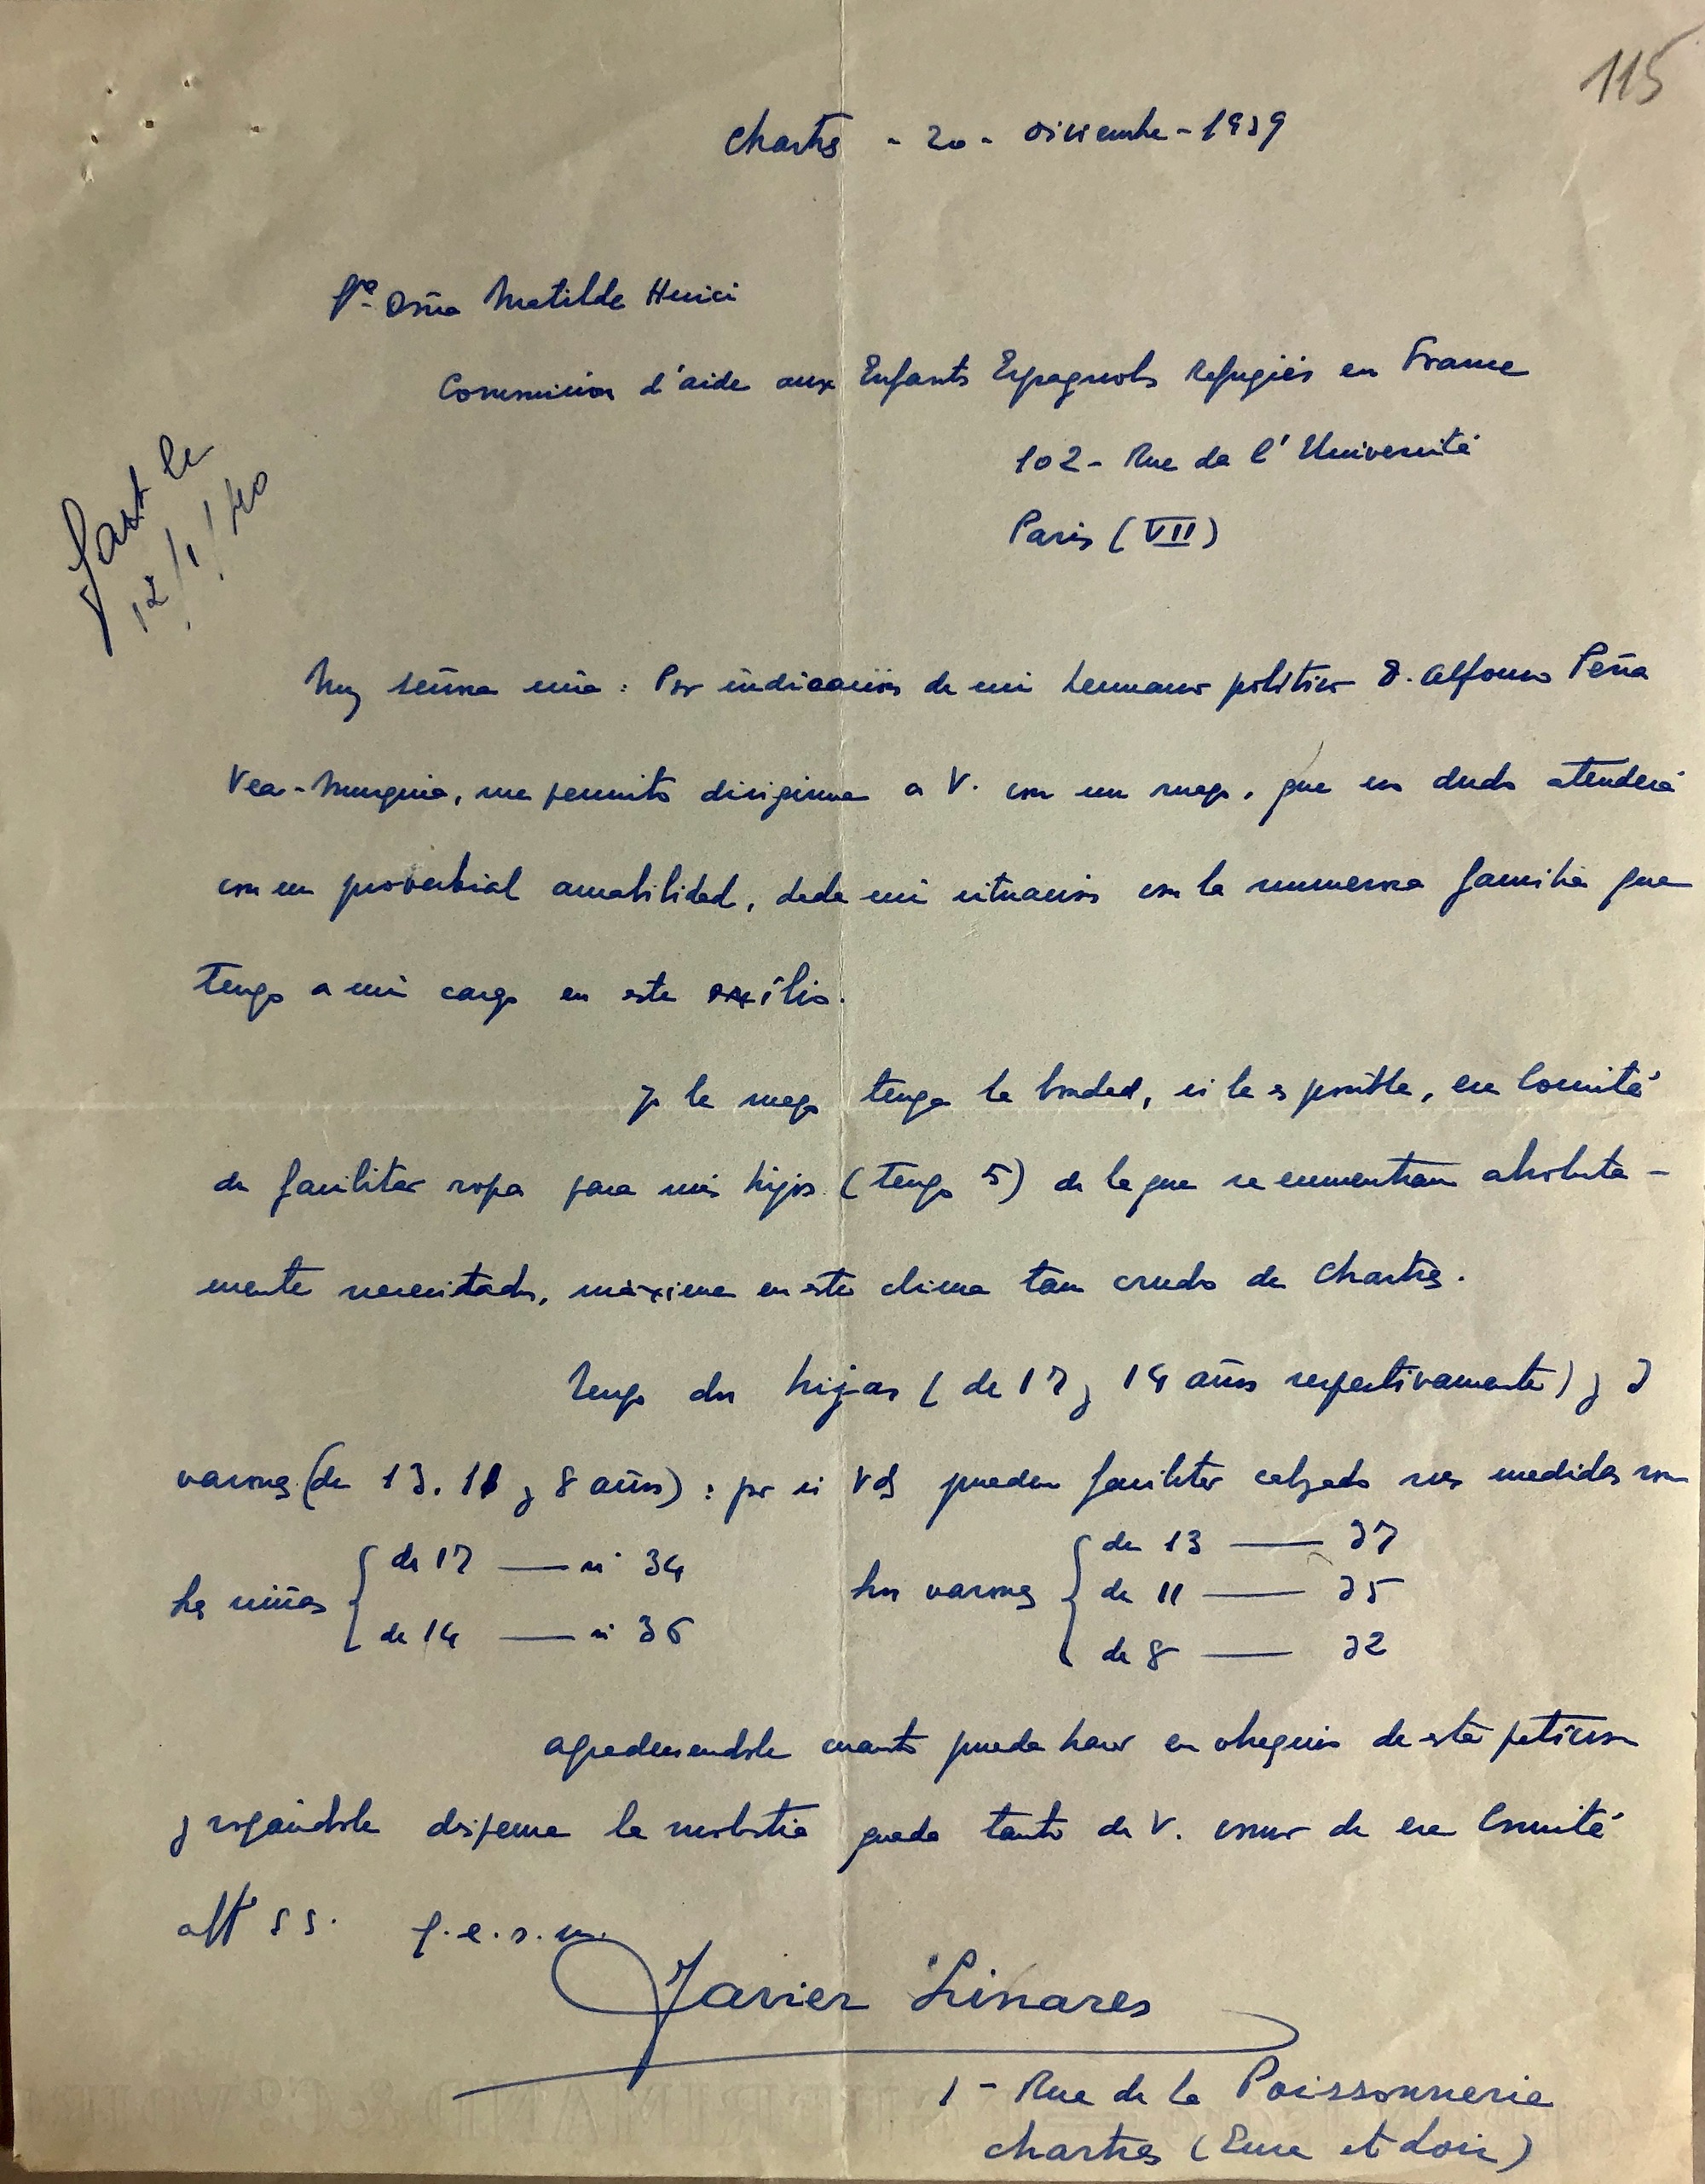 115
Chartres - 20 - Diciembre - 1939
Sra Dña Matilde Huici
Commission d'aide aux Enfants Espagnols Refugiés en France
102 - Rue de l'Université
Paris (VII)
fait le
12/1/40
Muy señora mia: Por indicación de mi hermano politico D. Alfonso Peña
Vea-Murguia, me permito dirigirme a V. con un ruego, que sin duda atenderá
con su proverbial amabilidad, dada mi situación con la numerosa familia que
tengo a mi cargo en este exílio.
Yo le ruego tenga la bondad, si le es posible, ese Comité
de facilitar ropa para mis hijos (tengo 5) de la que se encuentran absoluta-
mente necesitados, máxime en este clima tan crudo de Chartres.
Tengo dos hijas (de 17 y 14 años respectivamente) y 3
varones (de 13, 11 y 8 años): por si Vds pueden facilitar calzado sus medidas son
las niñas { de 17 — nº 34
de 14 — nº 36
los varones { de 13 — 37
de 11 — 35
de 8 — 32
agradeciendole cuanto pueda hacer en obsequio de esta peticion
y rogándole dispense la molestia queda tanto de V. como de ese Comité
att S S. q.e.s.m.
Javier Linares
1 - Rue de la Poissonnerie
Chartres (Eure et Loir)